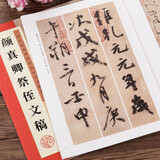 維乾元元年歲
次戊戌九月庚
午朔三日壬申
颜真卿祭侄文稿